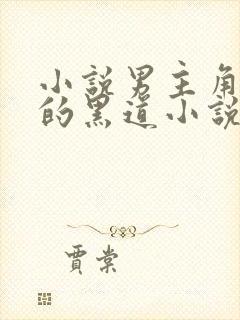 小說男主角
的黑道小說
賈棠